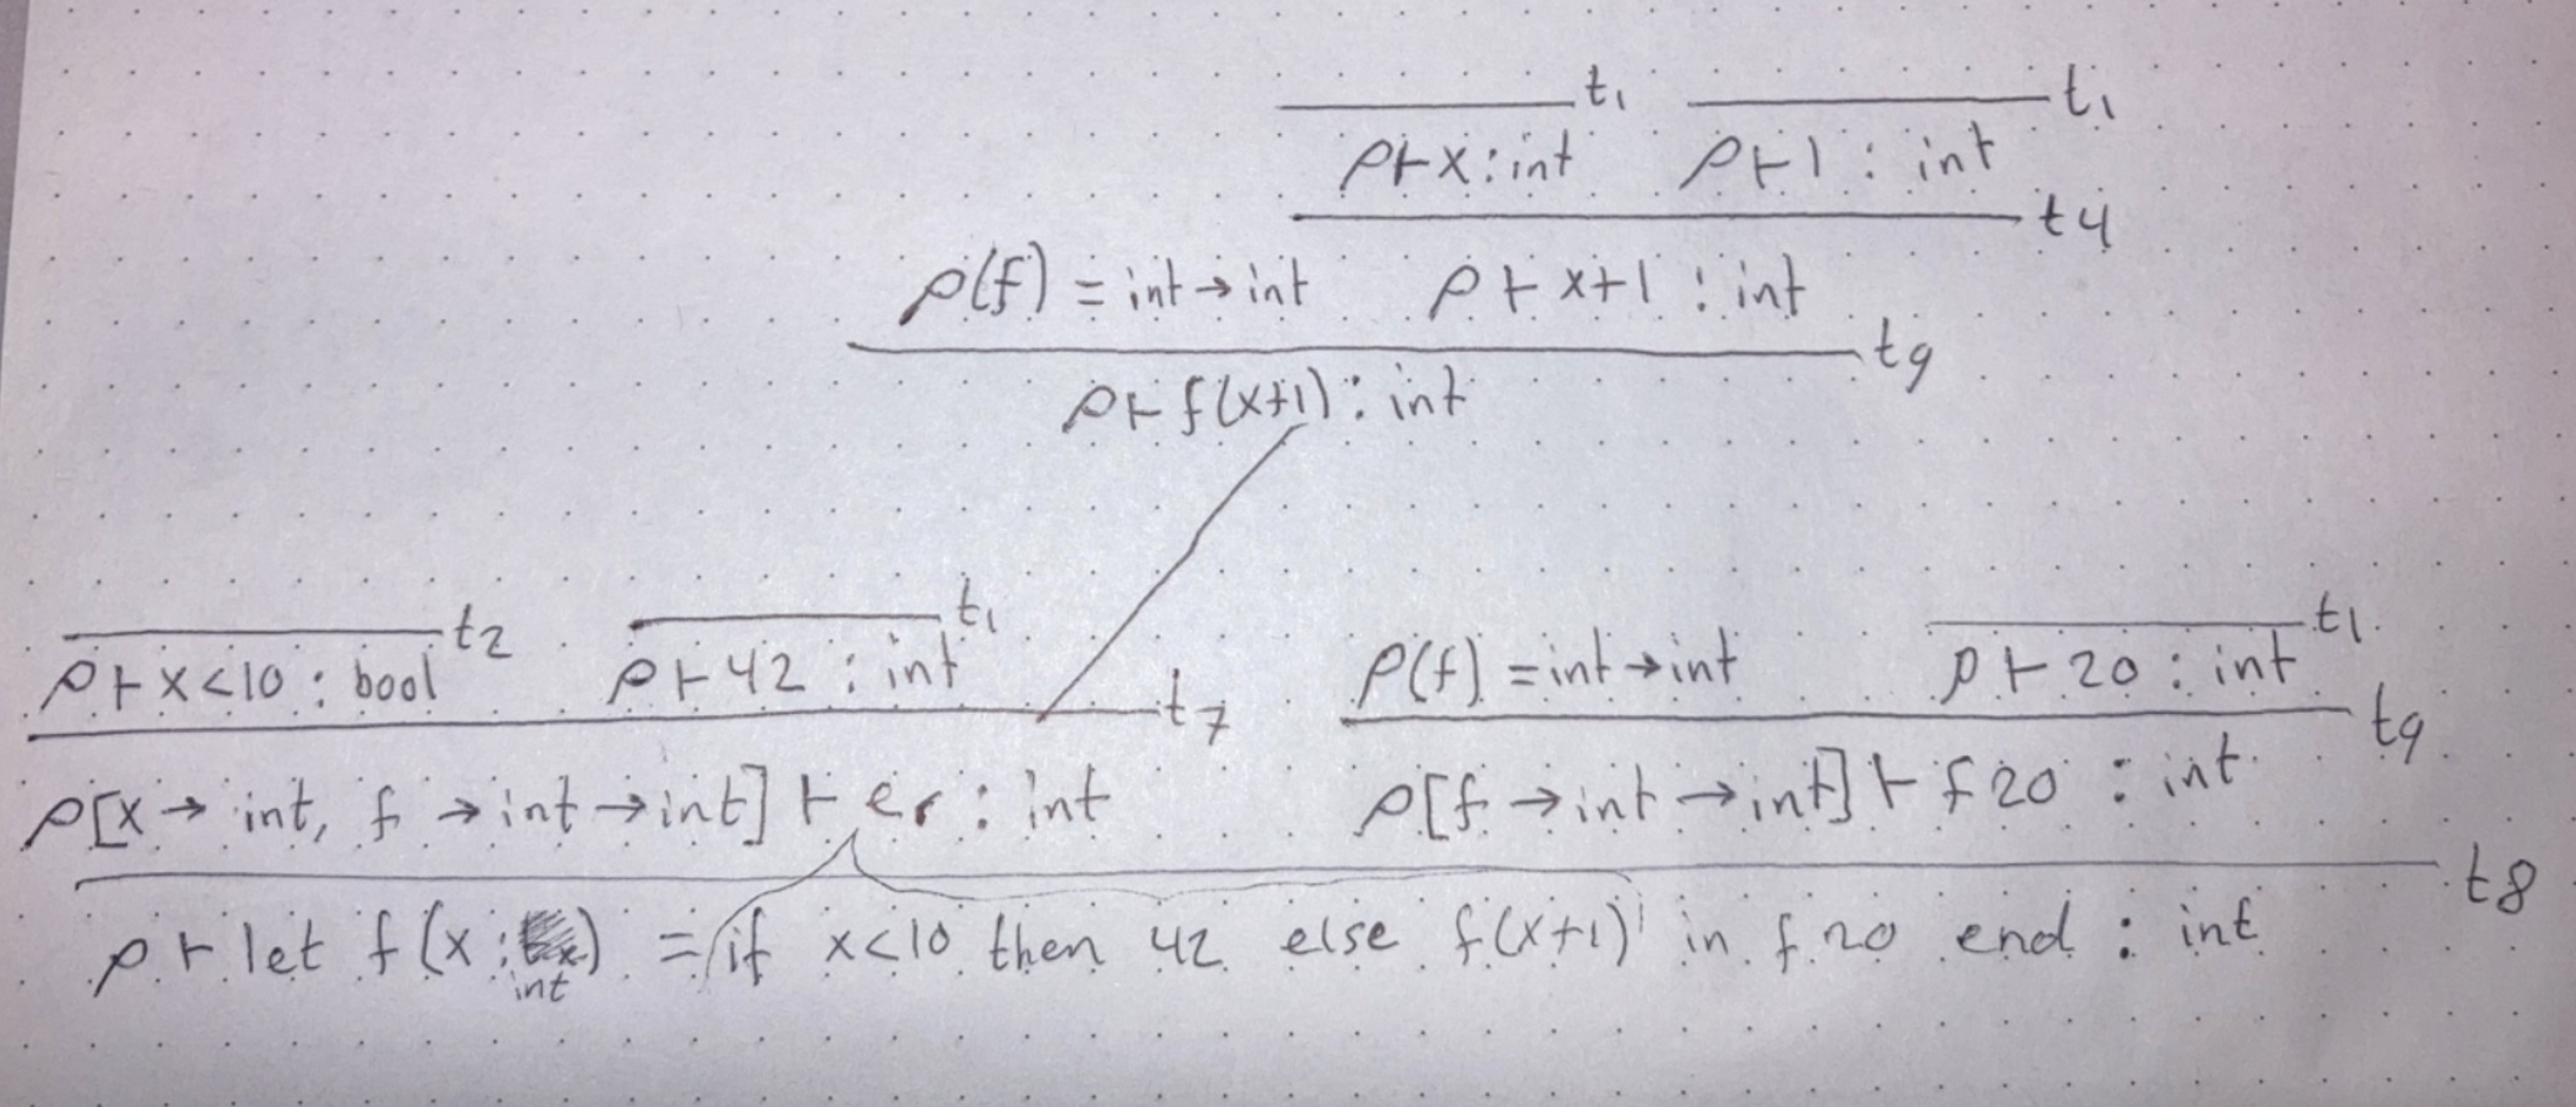 t₁ t₁
ρ⊢x:int ρ⊢1 : int
t4
ρ(f) = int→int ρ⊢x+1 : int
t9
ρ⊢f(x+1) : int
t2 t₁ t1
ρ⊢x<10 : bool ρ⊢42 : int ρ(f) = int→int ρ⊢20 : int
t7 t9
ρ[x→ int, f →int→int]⊢er : int ρ[f→int→int]⊢f 20 : int
t8
ρ⊢let f(x: ) = if x<10 then 42 else f(x+1) in f 20 end : int
int